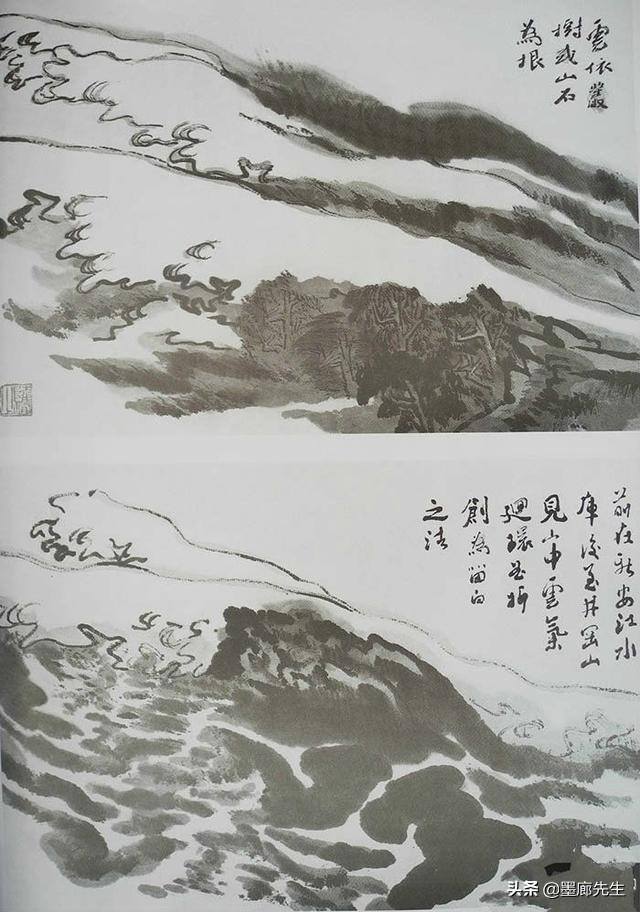 雲依叢
樹或山石
為根
前在新安江水
庫後至井岡山
見山中雲氣
迴環曲折
創為留白
之法
头条 @墨廊先生